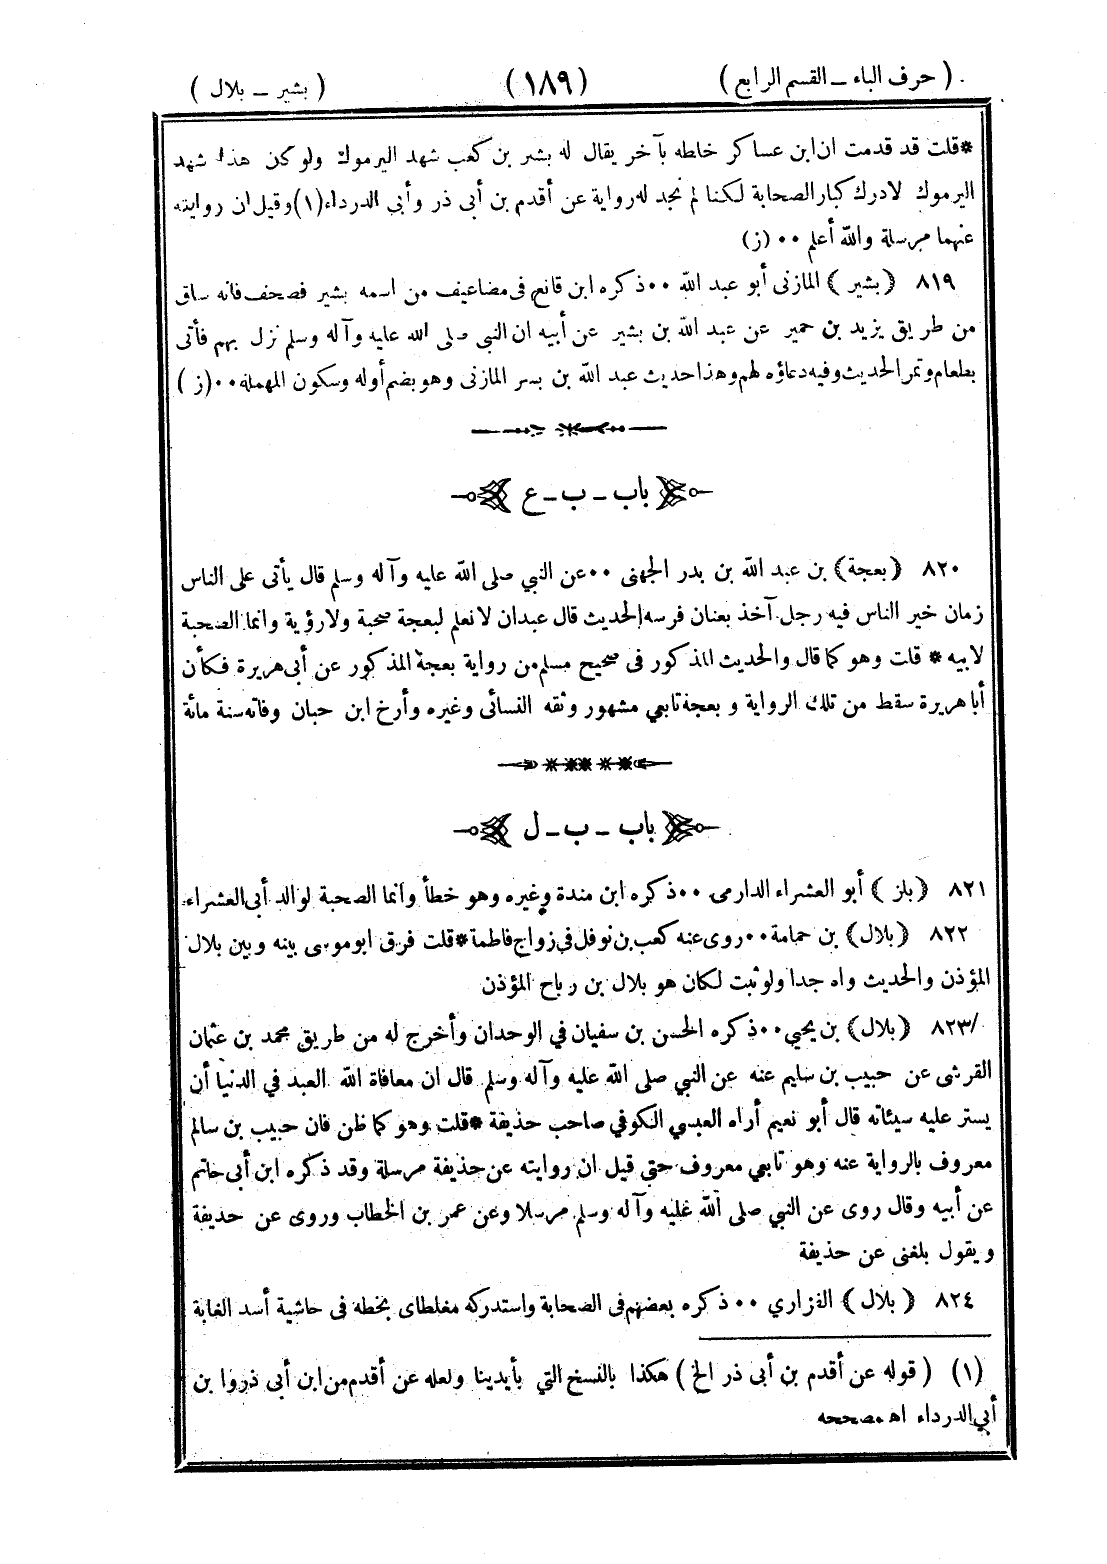 ( حرف الباء ــ القسم الرابع ) (١٨٩) ( بشير ــ بلال )
*قلت قد قدمت ان ابن عساكر خلطه بآخر يقال له بشير بن كعب شهد اليرموك ولو كان هذا شهد
اليرموك لادرك كبار الصحابة لكنا لم نجد له رواية عن أقدم بن أبى ذر وأبي الدرداء(١)وقيل ان روايته
عنهما مرسلة والله أعلم ٠٠ (ز)
٨١٩ (بشير ) المازنى أبو عبد الله ٠٠ ذكره ابن قانع فى مضاعيف من اسمه بشير فصحف فانه ساق
من طريق يزيد بن حمير عن عبد الله بن بشير عن أبيه ان النبي صلى الله عليه وآله وسلم نزل بهم فأتى
بطعام وتمر الحديث وفيه دعاؤه لهم وهذا حديث عبد الله بن بسر المازنى وهو بضم أوله وسكون المهملة ٠٠ (ز )
باب ــ ب ــ ع
٨٢٠ (بعجة) بن عبد الله بن بدر الجهنى ٠٠ عن النبي صلى الله عليه وآله وسلم قال يأتى على الناس
زمان خير الناس فيه رجل آخذ بعنان فرسه الحديث قال عبدان لا نعلم لبعجة صحبة ولا رؤية وانما الصحبة
لابيه * قلت وهو كما قال والحديث المذكور فى صحيح مسلم من رواية بعجة المذكور عن أبى هريرة فكأن
أبا هريرة سقط من تلك الرواية و بعجة تابعي مشهور وثقه النسائى وغيره وأرخ ابن حبان وفاته سنة مائة
باب ــ ب ــ ل
٨٢١ (بلز ) أبو العشراء الدارمى ٠٠ ذكره ابن مندة وغيره وهو خطأ وانما الصحبة لوالد أبى العشراء
٨٢٢ (بلال) بن حمامة ٠٠ روى عنه كعب بن نوفل في زواج فاطمة *قلت فرق ابو موسى بينه وبين بلال
المؤذن والحديث واه جدا ولو ثبت لكان هو بلال بن رباح المؤذن
٨٢٣ (بلال) بن يحيي ٠٠ ذكره الحسن بن سفيان في الوحدان وأخرج له من طريق محمد بن عثمان
القرشى عن حبيب بن سليم عنه عن النبي صلى الله عليه وآله وسلم قال ان معافاة الله العبد في الدنيا أن
يستر عليه سيئاته قال أبو نعيم أراه العبسي الكوفي صاحب حذيفة *قلت وهو كما ظن فان حبيب بن سالم
معروف بالرواية عنه وهو تابعي معروف حتي قيل ان روايته عن حذيفة مرسلة وقد ذكره ابن أبى حاتم
عن أبيه وقال روى عن النبي صلى الله عليه وآله وسلم مرسلا وعن عمر بن الخطاب وروى عن حذيفة
و يقول بلغنى عن حذيفة
٨٢٤ ( بلال ) الفزاري ٠٠ ذكره بعضهم فى الصحابة واستدركه مغلطاى بخطه فى حاشية أسد الغابة
(١) ( قوله عن أقدم بن أبى ذر الخ ) هكذا بالنسخ التي بأيدينا ولعله عن أقدم من ابن أبى ذر وا بن
أبي الدرداء اه مصححه